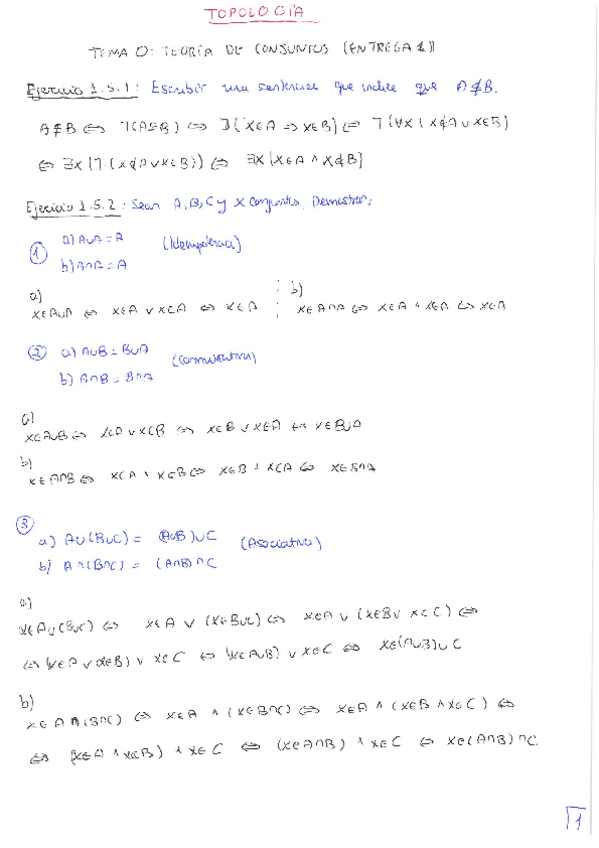 TOPOLOGÍA
TEMA 0: TEORÍA DE CONJUNTOS (ENTREGA 1)
Ejercicio 1.5.1: Escribir una sentencia que indice que A⊄B.
A⊄B ⇔ ˥(A⊆B) ⇔ ˥(x∈A ⇒ x∈B) ⇔ ˥(∀x | x∉A ∨ x∈B)
⇔ ∃x | ˥(x∉A ∨ x∈B) ⇔ ∃x | x∈A ∧ x∉B
Ejercicio 1.5.2: Sean A, B, C y X conjuntos. Demostrar:
① a) A∪A = A (Idempotencia)
b) A∩A = A
a) b)
x∈A∪A ⇔ x∈A ∨ x∈A ⇔ x∈A x∈A∩A ⇔ x∈A ∧ x∈A ⇔ x∈A
② a) A∪B = B∪A (Conmutativa)
b) A∩B = B∩A
a)
x∈A∪B ⇔ x∈A ∨ x∈B ⇔ x∈B ∨ x∈A ⇔ x∈B∪A
b)
x∈A∩B ⇔ x∈A ∧ x∈B ⇔ x∈B ∧ x∈A ⇔ x∈B∩A
③ a) A∪(B∪C) = (A∪B)∪C (Asociativa)
b) A∩(B∩C) = (A∩B)∩C
a)
x∈A∪(B∪C) ⇔ x∈A ∨ (x∈B∪C) ⇔ x∈A ∨ (x∈B ∨ x∈C) ⇔
⇔ (x∈A ∨ x∈B) ∨ x∈C ⇔ (x∈A∪B) ∨ x∈C ⇔ x∈(A∪B)∪C
b)
x∈A∩(B∩C) ⇔ x∈A ∧ (x∈B∩C) ⇔ x∈A ∧ (x∈B ∧ x∈C) ⇔
⇔ (x∈A ∧ x∈B) ∧ x∈C ⇔ (x∈A∩B) ∧ x∈C ⇔ x∈(A∩B)∩C
1